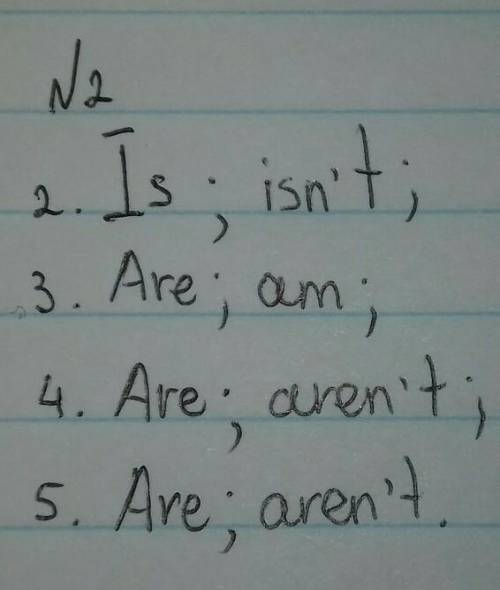 N2
2. Is; isn't;
3. Are; am;
4. Are; aren't;
5. Are; aren't.